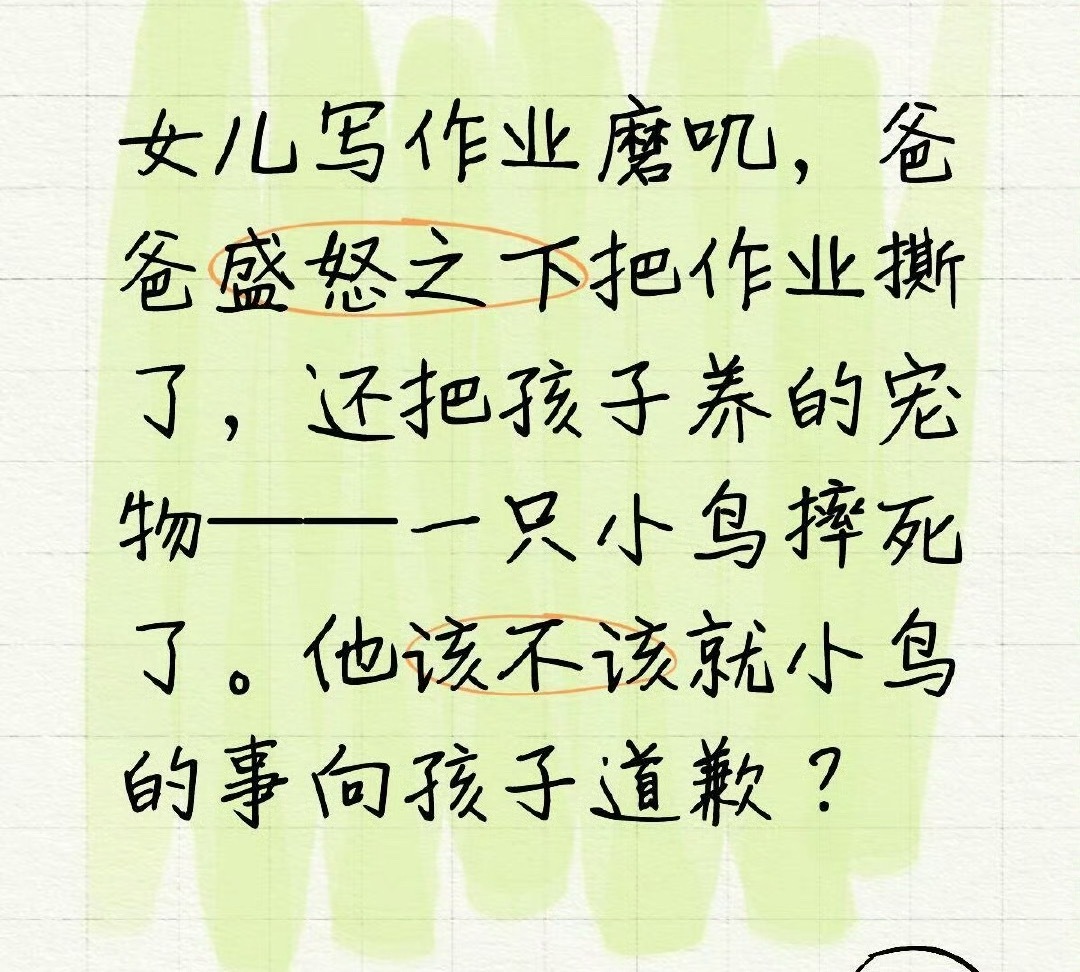 女儿写作业磨叽，爸
爸盛怒之下把作业撕
了，还把孩子养的宠
物——一只小鸟摔死
了。他该不该就小鸟
的事向孩子道歉？